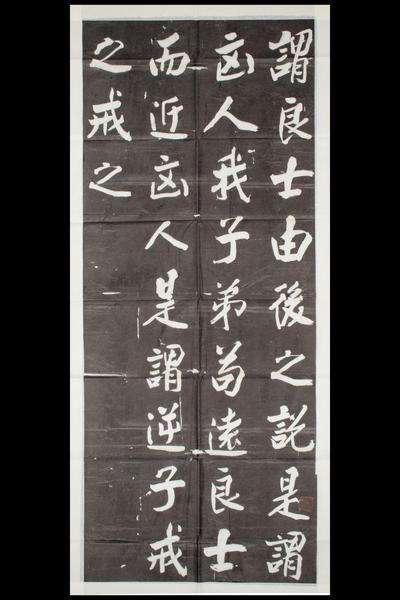 謂良士由後之説是謂
凶人我子弟苟遠良士
而近凶人是謂逆子戒
之戒之